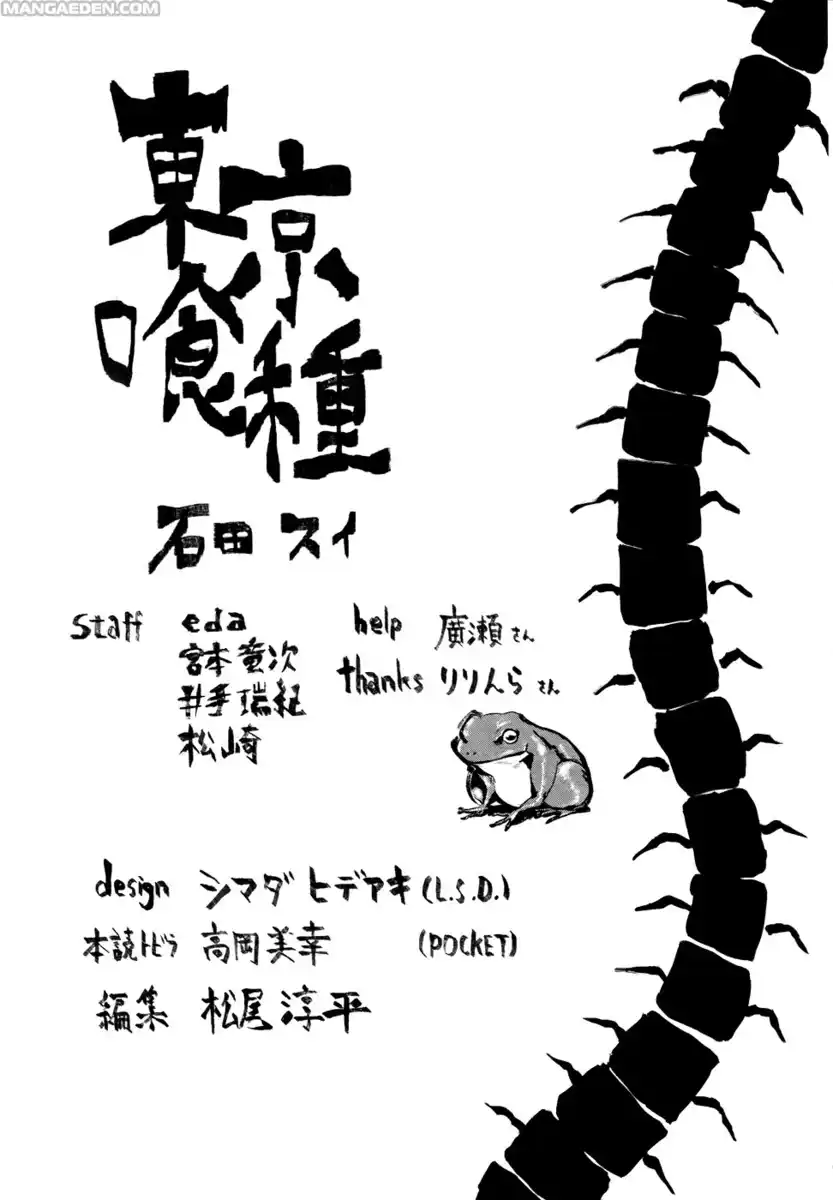 MANGAEDEN.COM
東京
喰種
石田スイ
staff eda
宮本竜次
井手瑞紀
松崎
help 廣瀬さん
thanks りりんらさん
design シマダヒデアキ (L.S.D.)
本読トビラ 高岡美幸 (POCKET)
編集 松尾淳平